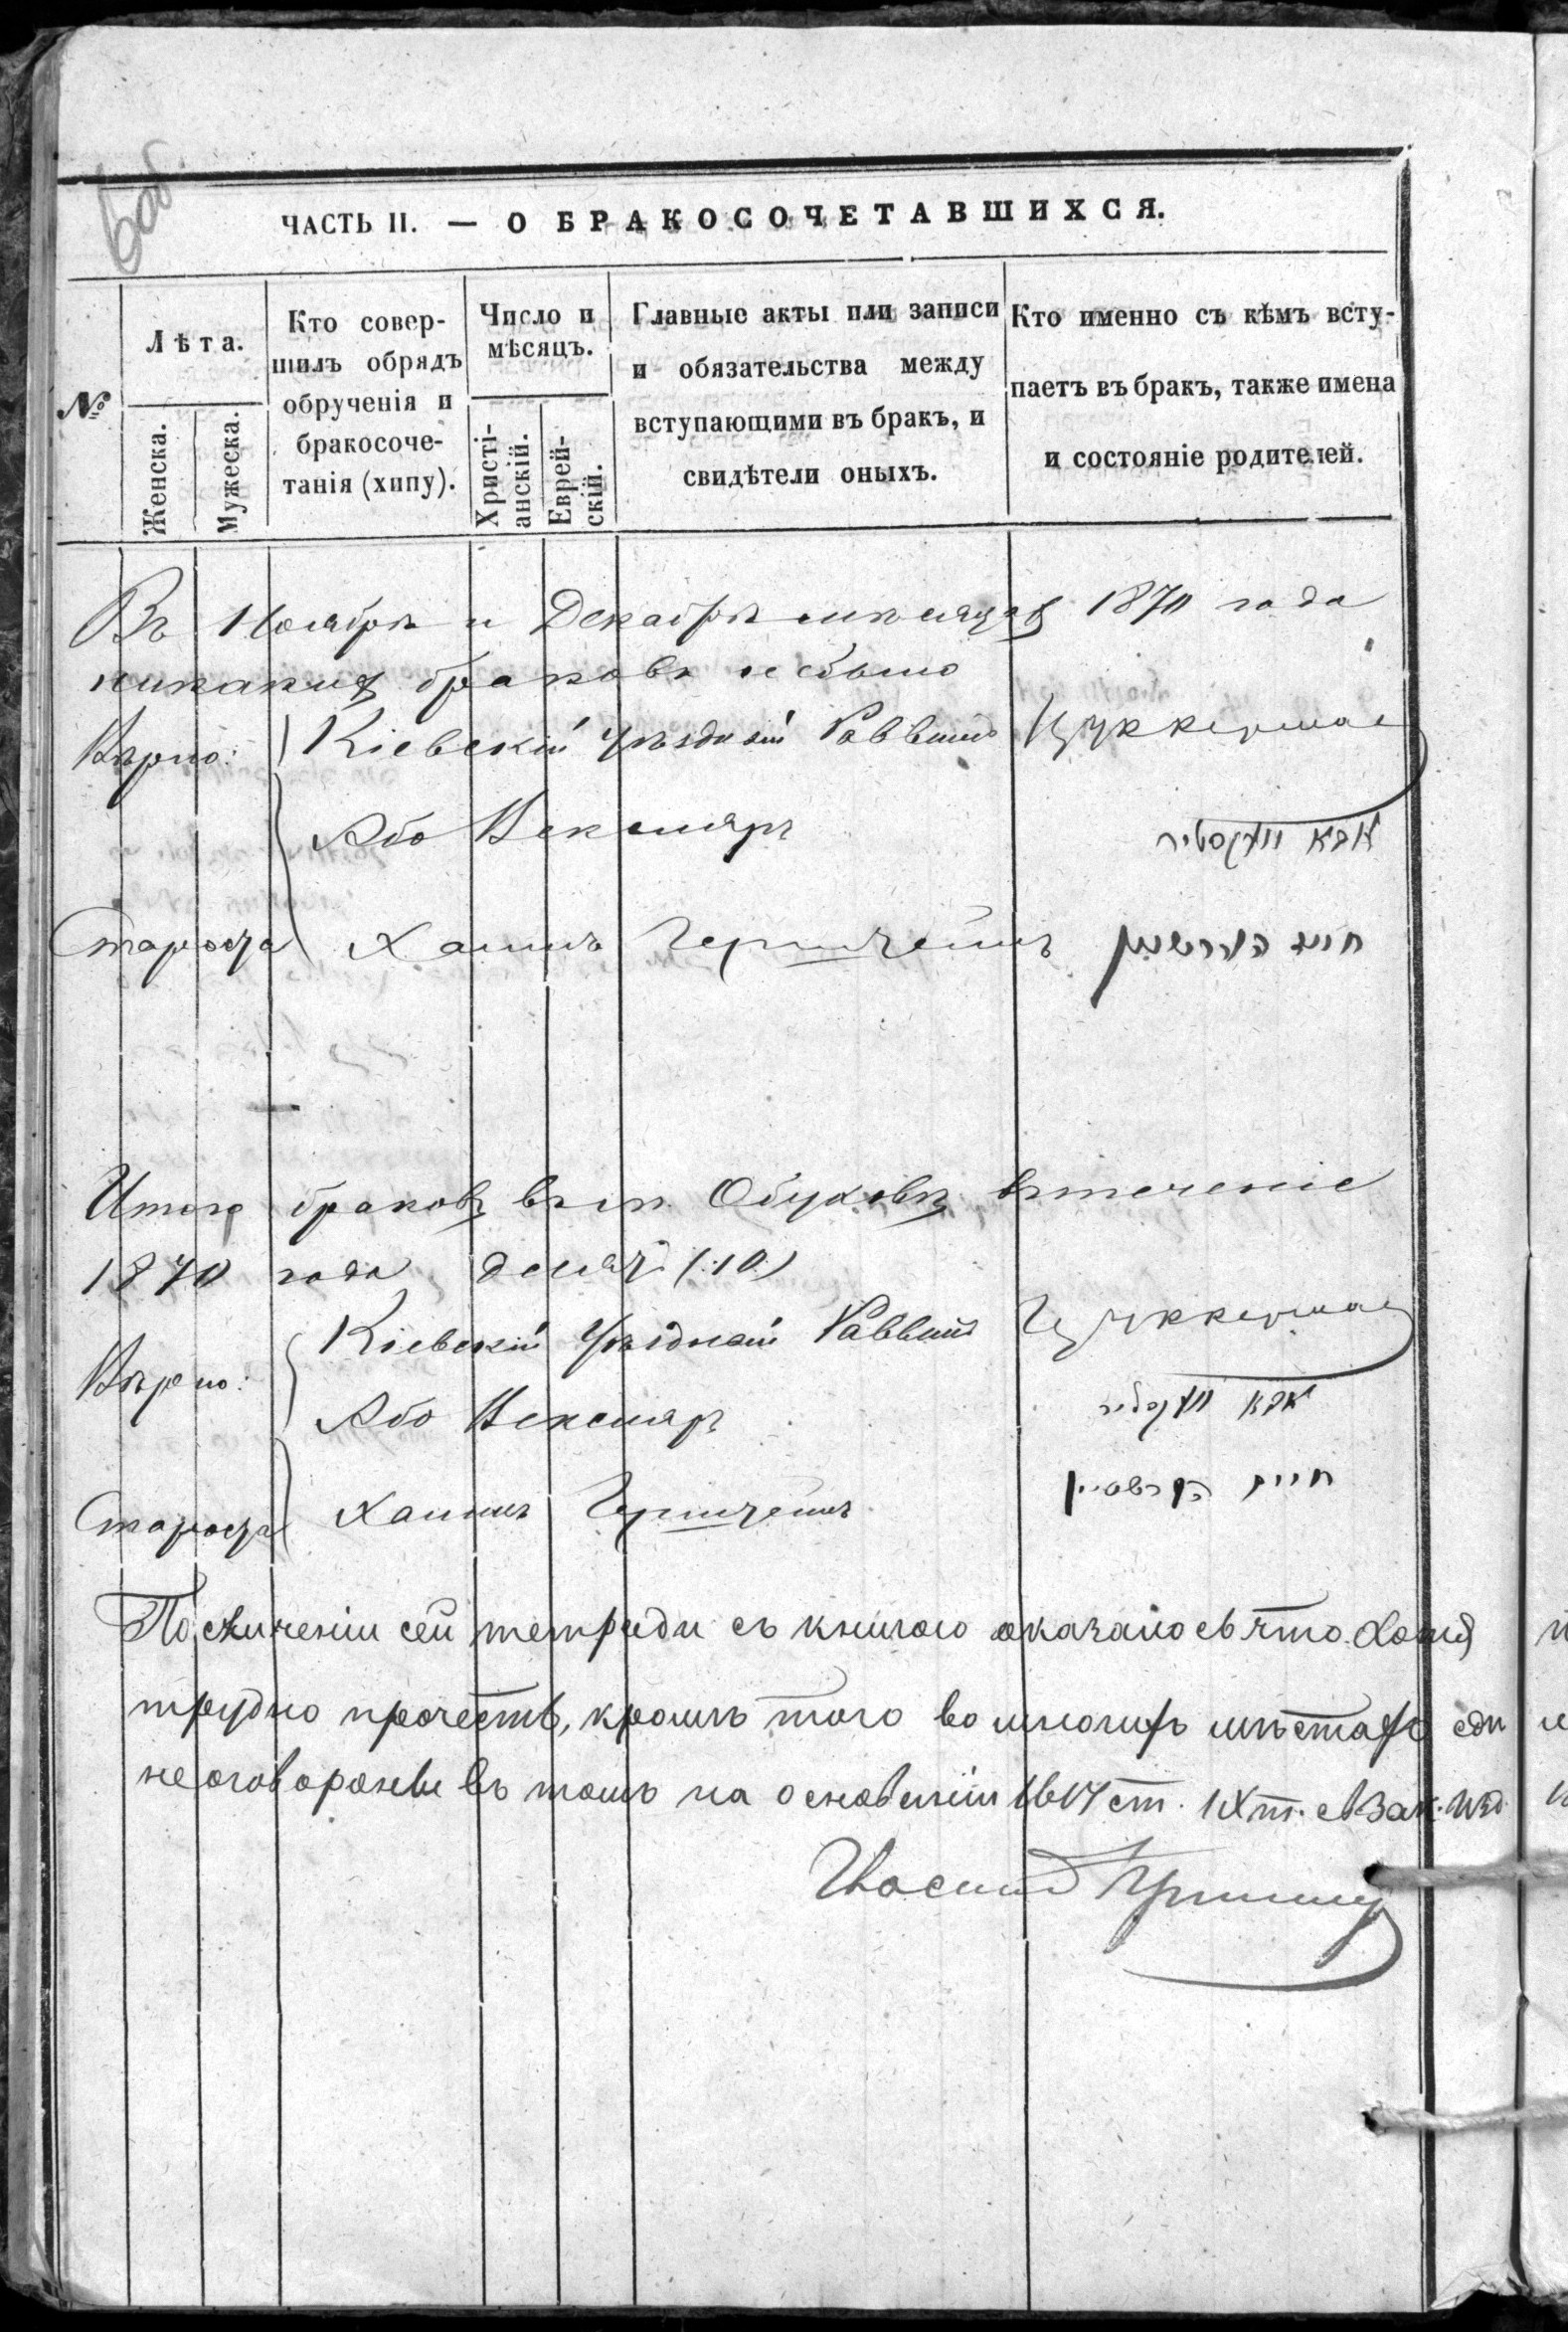 6об.
ЧАСТЬ II. — О БРАКОСОЧЕТАВШИХСЯ.
№
Лѣта.
Женска.
Мужеска.
Кто совер-
шилъ обрядъ
обрученія и
бракосоче-
танія (хипу).
Число и
мѣсяцъ.
Христі-
анскій.
Еврей-
скій.
Главные акты или записи
и обязательства между
вступающими въ бракъ, и
свидѣтели оныхъ.
Кто именно съ кѣмъ всту-
паетъ въ бракъ, также имена
и состояніе родителей.
Въ Ноябрѣ и Декабрѣ мѣсяцах 1870 года
никаких браковъ не было
Вѣрно: Кіевскій Уѣздный Раввинъ Цуккерман
Або Векслеръ
אבא וועקסליר
Староста Хаимъ Герштейнъ חיים הערשטיין
Итого браковъ въ м. Обуховѣ втеченіе
1870 года десять (10)
Вѣрно: Кіевскій Уѣздный Раввинъ Цуккерман
Або Векслеръ אבא וועקסליר
Староста Хаимъ Герштейнъ חיים הערשטיין
По сличеніи сей тетради съ книгою оказалось что
трудно прочесть, кромѣ того во многихъ мѣстахъ
не оговорены въ томъ на основаніи 1617 ст. IX т. св Зак. изд
Іосифъ